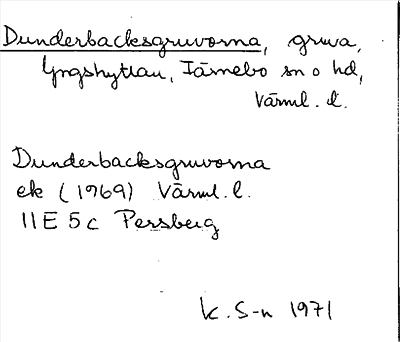 Dunderbacksgruvorna, gruva,
Yngshyttan, Färnebo sn o hd,
Värml. l.
Dunderbacksgruvorna
ek (1969) Värml. l.
11E 5c Persberg
K. S-n 1971